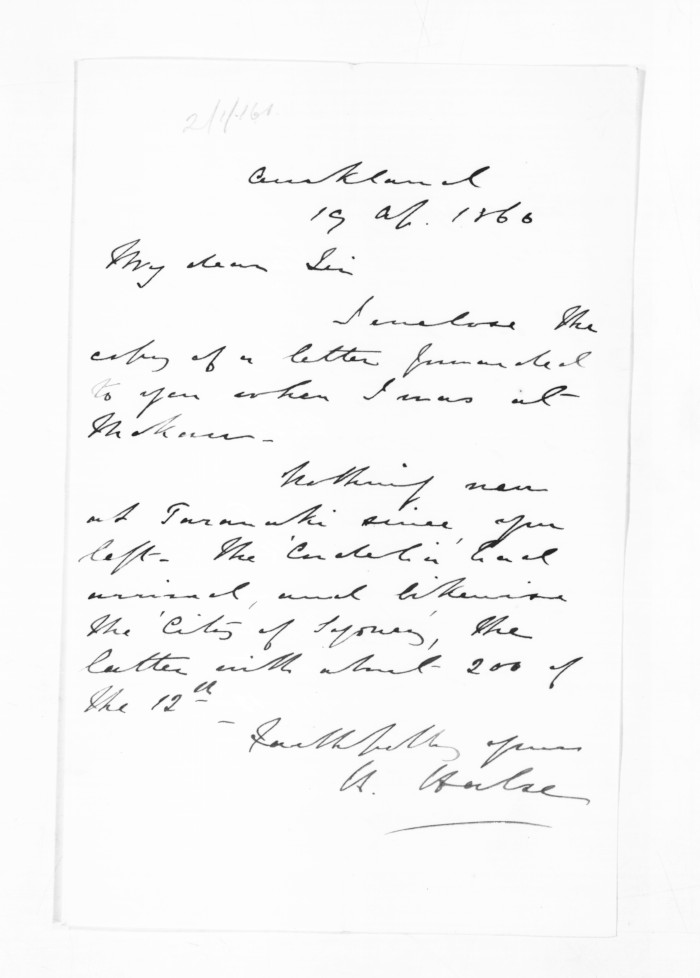 Auckland
19 Ap. 1860
My dear Sir
I enclose the
copy of a letter forwarded
to you when I was at
Mokau -
Nothing new
at Taranaki since you
left - The 'Cordelia' had
arrived, and likewise
the 'City of Sydney', the
latter with about 200 of
the 12th -
Faithfully yours
H. Halse